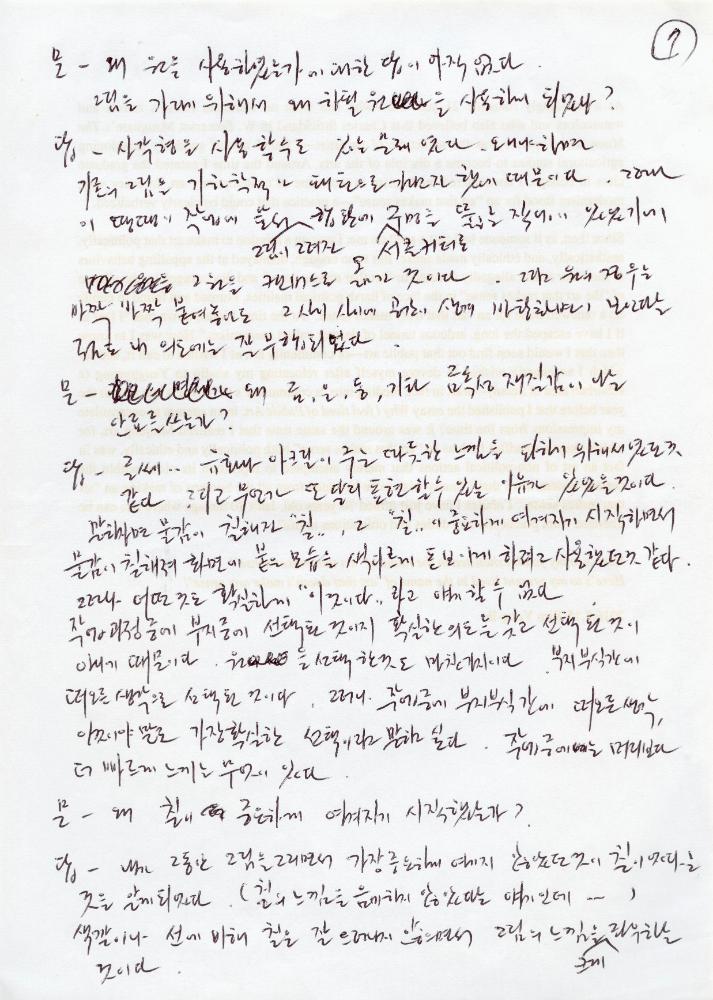 ①
문 - 왜 원을 사용하였는가에 대한 답이 아직 없다.
그림을 가리기 위해서 왜 하필 원을 사용하게 되었나?
답 - 사각형을 사용할 수도 있는 문제였다. 왜냐하면
기존의 그림을 기하학적인 패턴으로 가리고자 했기 때문이다. 그러나
이 때때이 작업에 앞서 그림이 그려진 화판에 서클커터로 구멍을 뚫는 작업이 있었기에
그 원을 캔버스로 옮긴 것이다. 그리고 원의 경우는
바짝 바짝 붙여놓아도 그 사이 사이에 공간이 생겨 바탕화면이 보인다는
점도 내 의도에는 잘 부합되었다.
문 - 왜 금, 은, 동, 기타 금속성 재질감이 나는
안료를 쓰는가?
답 - 글쎄.. 유화나 아크릴이 주는 따뜻한 느낌을 피하기 위해서였던 것
같다. 그리고 무언가 또 달리 표현할 수 있는 이유가 있었을 것이다.
말하자면 물감이 칠해진 "칠", 그 "칠"이 중요하게 여겨지기 시작하면서
물감이 칠해져 화면에 붙은 모습을 색다르게 돋보이게 하려고 사용했던 것 같다.
그러나 어떤 것도 확실하게 "이것이다" 라고 얘기할 수 없다.
작업과정 중에 부지중에 선택된 것이지 확실한 의도를 갖고 선택된 것이
아니기 때문이다. 원을 선택한 것도 마찬가지이다. 부지부식간에
떠오른 생각으로 선택된 것이다. 그러나 중에 부지부식간에 떠오른 생각,
이것이야 말로 가장 확실한 선택이라고 말하고 싶다. 중에는 머리보다
더 빠르게 느끼는 무엇이 있다.
문 - 왜 칠이 중요하게 여겨지기 시작했는가?
답 - 내가 그동안 그림을 그리면서 가장 중요하게 여기지 않았던 것이 칠이었다는
것을 알게 되었다. (칠의 느낌을 음미하지 않았다는 얘기인데 … )
색깔이나 선에 비해 칠은 잘 드러나지 않으면서 그림의 느낌을 크게 좌우하는
것이다.